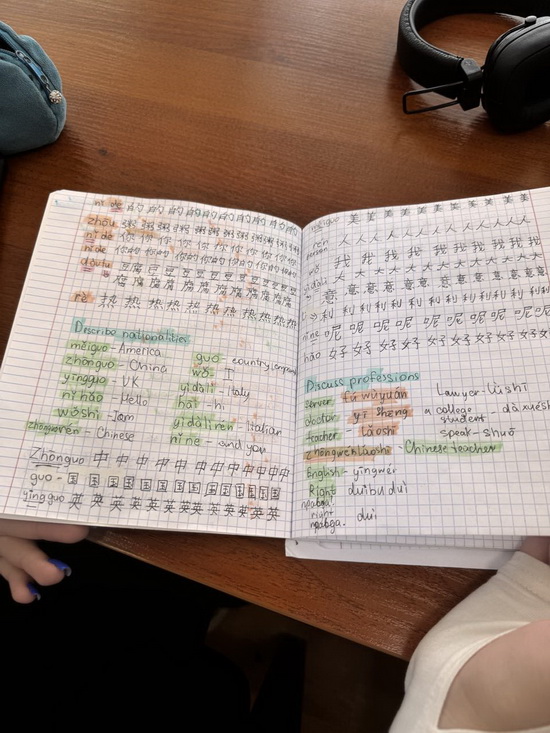 nǐ de 的的的的的的的的的的的的
zhōu 粥粥粥粥粥粥粥粥粥粥粥
nǐ de 你你你你你你你你你你
nide 你的你的你的你的你的你的
dòufu 豆腐豆豆豆豆豆豆豆豆豆
腐腐腐腐腐腐腐腐腐腐
rè 热热热热热热热热热热
Discribe nationalities
měiguo - America
zhōngguo - China
yīngguo - UK
nǐ hǎo - Hello
wǒshì - I am
zhōngguórén - Chinese
guó - country
wǒ - I
yìdàlì - Italy
hai - hi
yìdàlì rén - Italian
nǐ ne - and you
Zhōngguo 中中中中中中中中中中中中
guo - 国国国国国国国国国国国国
yīngguo 英英英英英英英英英英英英
meiguo 美美美美美美美美美美美
rén
person 人人人人人人人人人人人
wǒ 我我我我我我我我我
yìdàlì 大大大大大大大大大大大
意意意意意意意意意
利利利利利利利利利利
nǐ ne 呢呢呢呢呢呢呢呢
hǎo 好好好好好好好好好好
Discuss professions
server fú wùyuán
doctor yī shēng
teacher - lǎoshī
zhōngwén lǎoshī - Chinese teacher
English - yīngwén
Right duìbu duì
right
правда. duì
Lawyer - lǜshī
a college
student - dàxuésh
speak - shuō